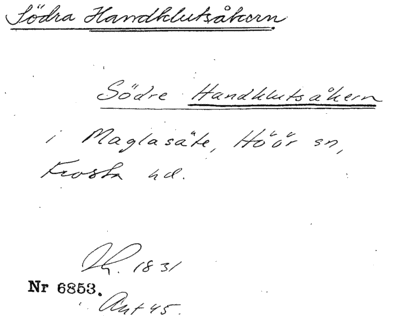 Södra Handklutsåkern
Södre Handklutsåkern
i Maglasäte, Höör sn,
Frosta hd.
1831
Nr 6853.
Ant 45.